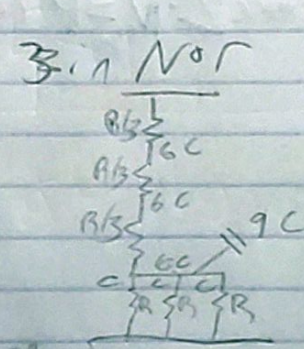 3-in Nor
R/3
6C
R/3
6C
R/3
9C
6C
C C C
R R R